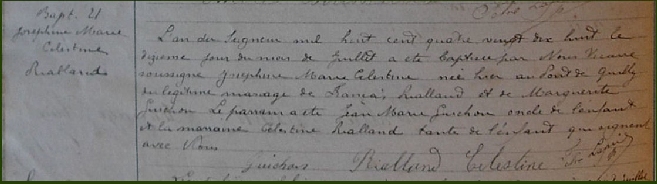 Bapt. 21
Josephine Marie
Celestine
Rialland
L'an du Seigneur mil huit cent quatre vingt dix huit le
dixieme jour du mois de Juillet a été baptisée par Nous Vicaire
soussigné Josephine Marie Celestine née hier au Pont de Quilly
du légitime mariage de François Rialland et de Marguerite
Guichon Le parrain a été Jean Marie Guichon oncle de l'enfant
et la marraine Celestine Rialland tante de l'enfant qui signent
avec Nous
Guichon Rialland Celestine